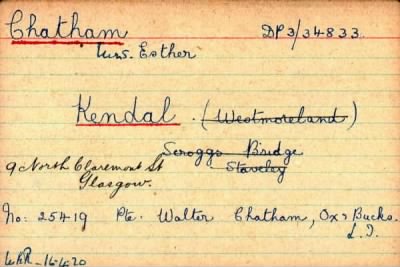 Chatham DP3/34833.
Mrs. Esther
Kendal. (Westmoreland)
Scroggs Bridge
Staveley
9 North Claremont St
Glasgow.
No: 25419 Pte. Walter Chatham, Ox & Bucks.
L.I.
16.4.20